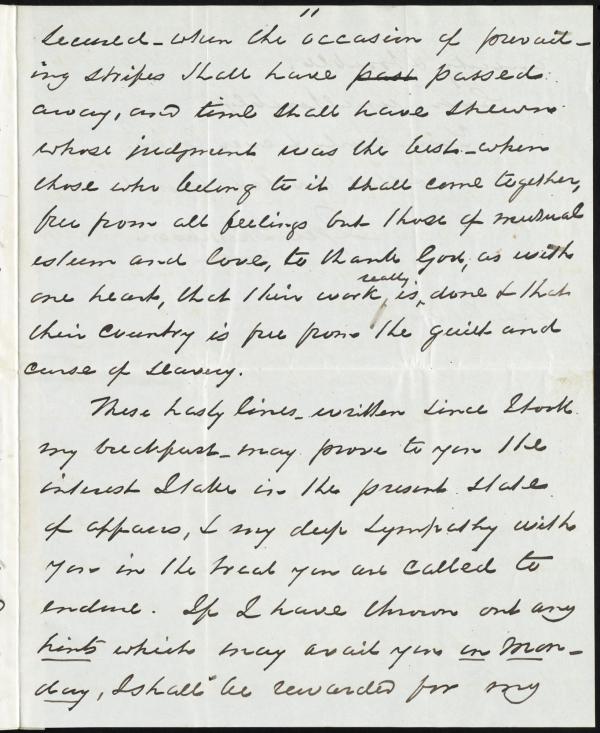 11
secured - when the occasion of prevail-
ing strifes shall have past passed
away, and time shall have shewn
whose judgment was the best - when
those who belong to it shall come together,
free from all feelings but those of mutual
esteem and love, to thank God, as with
one heart, that their work, really is, done & that
their country is free from the guilt and
curse of slavery.
These hasty lines - written since I took
my breakfast - may prove to you the
interest I take in the present state
of affairs, & my deep sympathy with
you in the trial you are called to
endure. If I have thrown out any
hints which may avail you on Mon-
day, I shall be rewarded for my